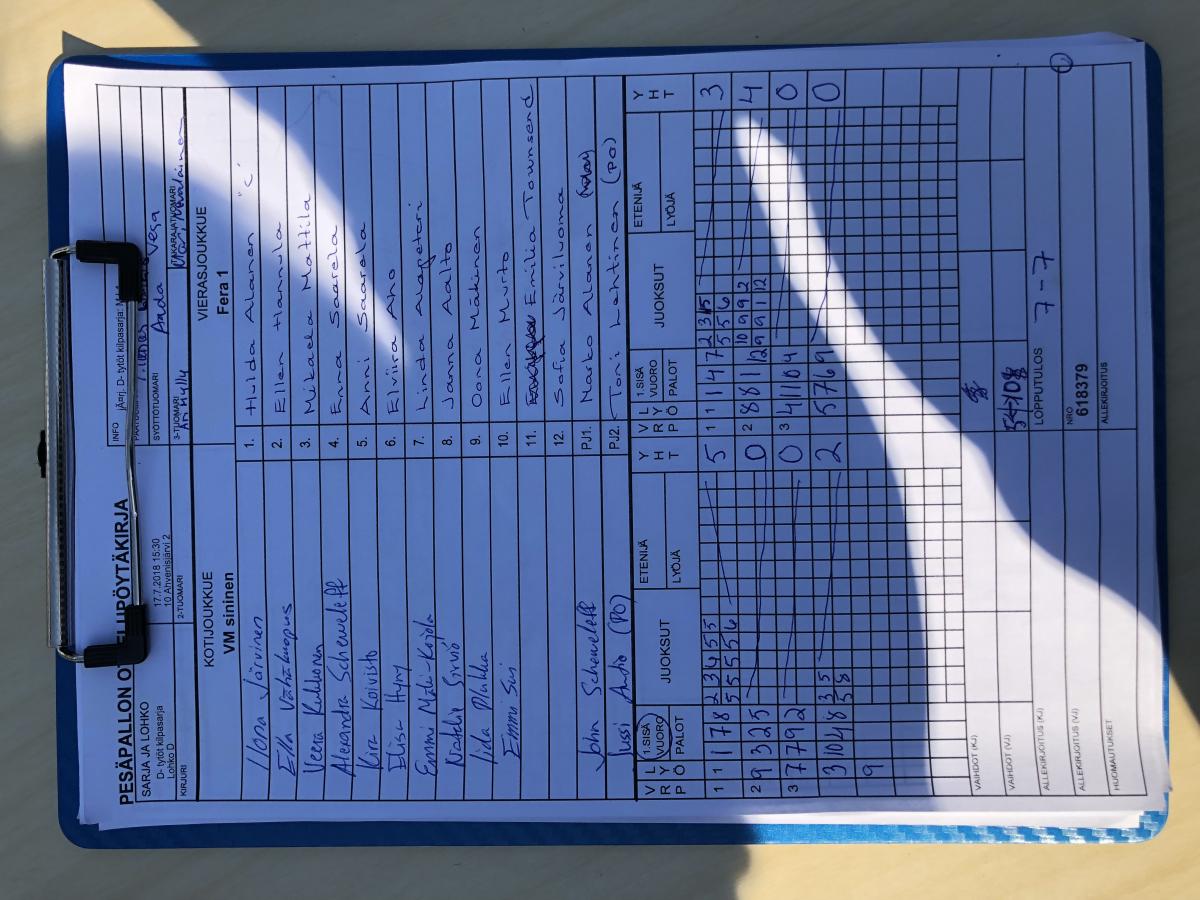 PESÄPALLON OTTELUPÖYTÄKIRJA
SARJA JA LOHKO
D- tytöt kilpasarja
Lohko D
17.7.2018 15:30
10 Ahvenisjärvi 2
INFO
D- tytöt kilpasarja:
SYÖTTÖTUOMARI
Vega
KIRJURI
2-TUOMARI
3-TUOMARI
Ari Hylly
TAKARAJATUOMARI
KOTIJOUKKUE
VM sininen
VIERASJOUKKUE
Fera 1
Ilona Järvinen 1. Hulda Alanen "C"
Ella Vähäkuopus 2. Ellen Hannula
Veera Kukkonen 3. Mikaela Mattila
Alexandra Scheweleff 4. Enna Saarela
Kira Koivisto 5. Anni Saarela
Elisa Hyry 6. Elviira Aho
Emmi Mäki-Kojola 7. Linda Alapeteri
Natalie Sirviö 8. Janna Aalto
Iida Plukka 9. Oona Mäkinen
Emmi Susi 10. Ellen Murto
11. Emilia Townsend
12. Sofia Järviluoma
John Scheweleff PJ1. Marko Alanen
Jussi Autio (PO) PJ2. Toni Lehtinen (PO)
V R P L Y Ö 1.SISÄ VUORO PALOT JUOKSUT ETENIJÄ LYÖJÄ Y H T V R P L Y Ö 1.SISÄ VUORO PALOT JUOKSUT ETENIJÄ LYÖJÄ Y H T
1 1 1 7 8 2 3 4 5 5 5 1 1 1 4 7 2 3 1 5 3
5 5 5 5 6 5 5 6
2 9 3 2 5 0 2 8 8 1 12 10 9 9 2 4
9 9 1 12
3 7 7 9 2 0 3 4 11 10 4 0
3 10 4 8 3 5 2 5 7 6 9 0
5 8
9
VAIHDOT (KJ)
VAIHDOT (VJ)
ALLEKIRJOITUS (KJ)
LOPPUTULOS 7 - 7
ALLEKIRJOITUS (VJ)
NRO
618379
HUOMAUTUKSET
ALLEKIRJOITUS